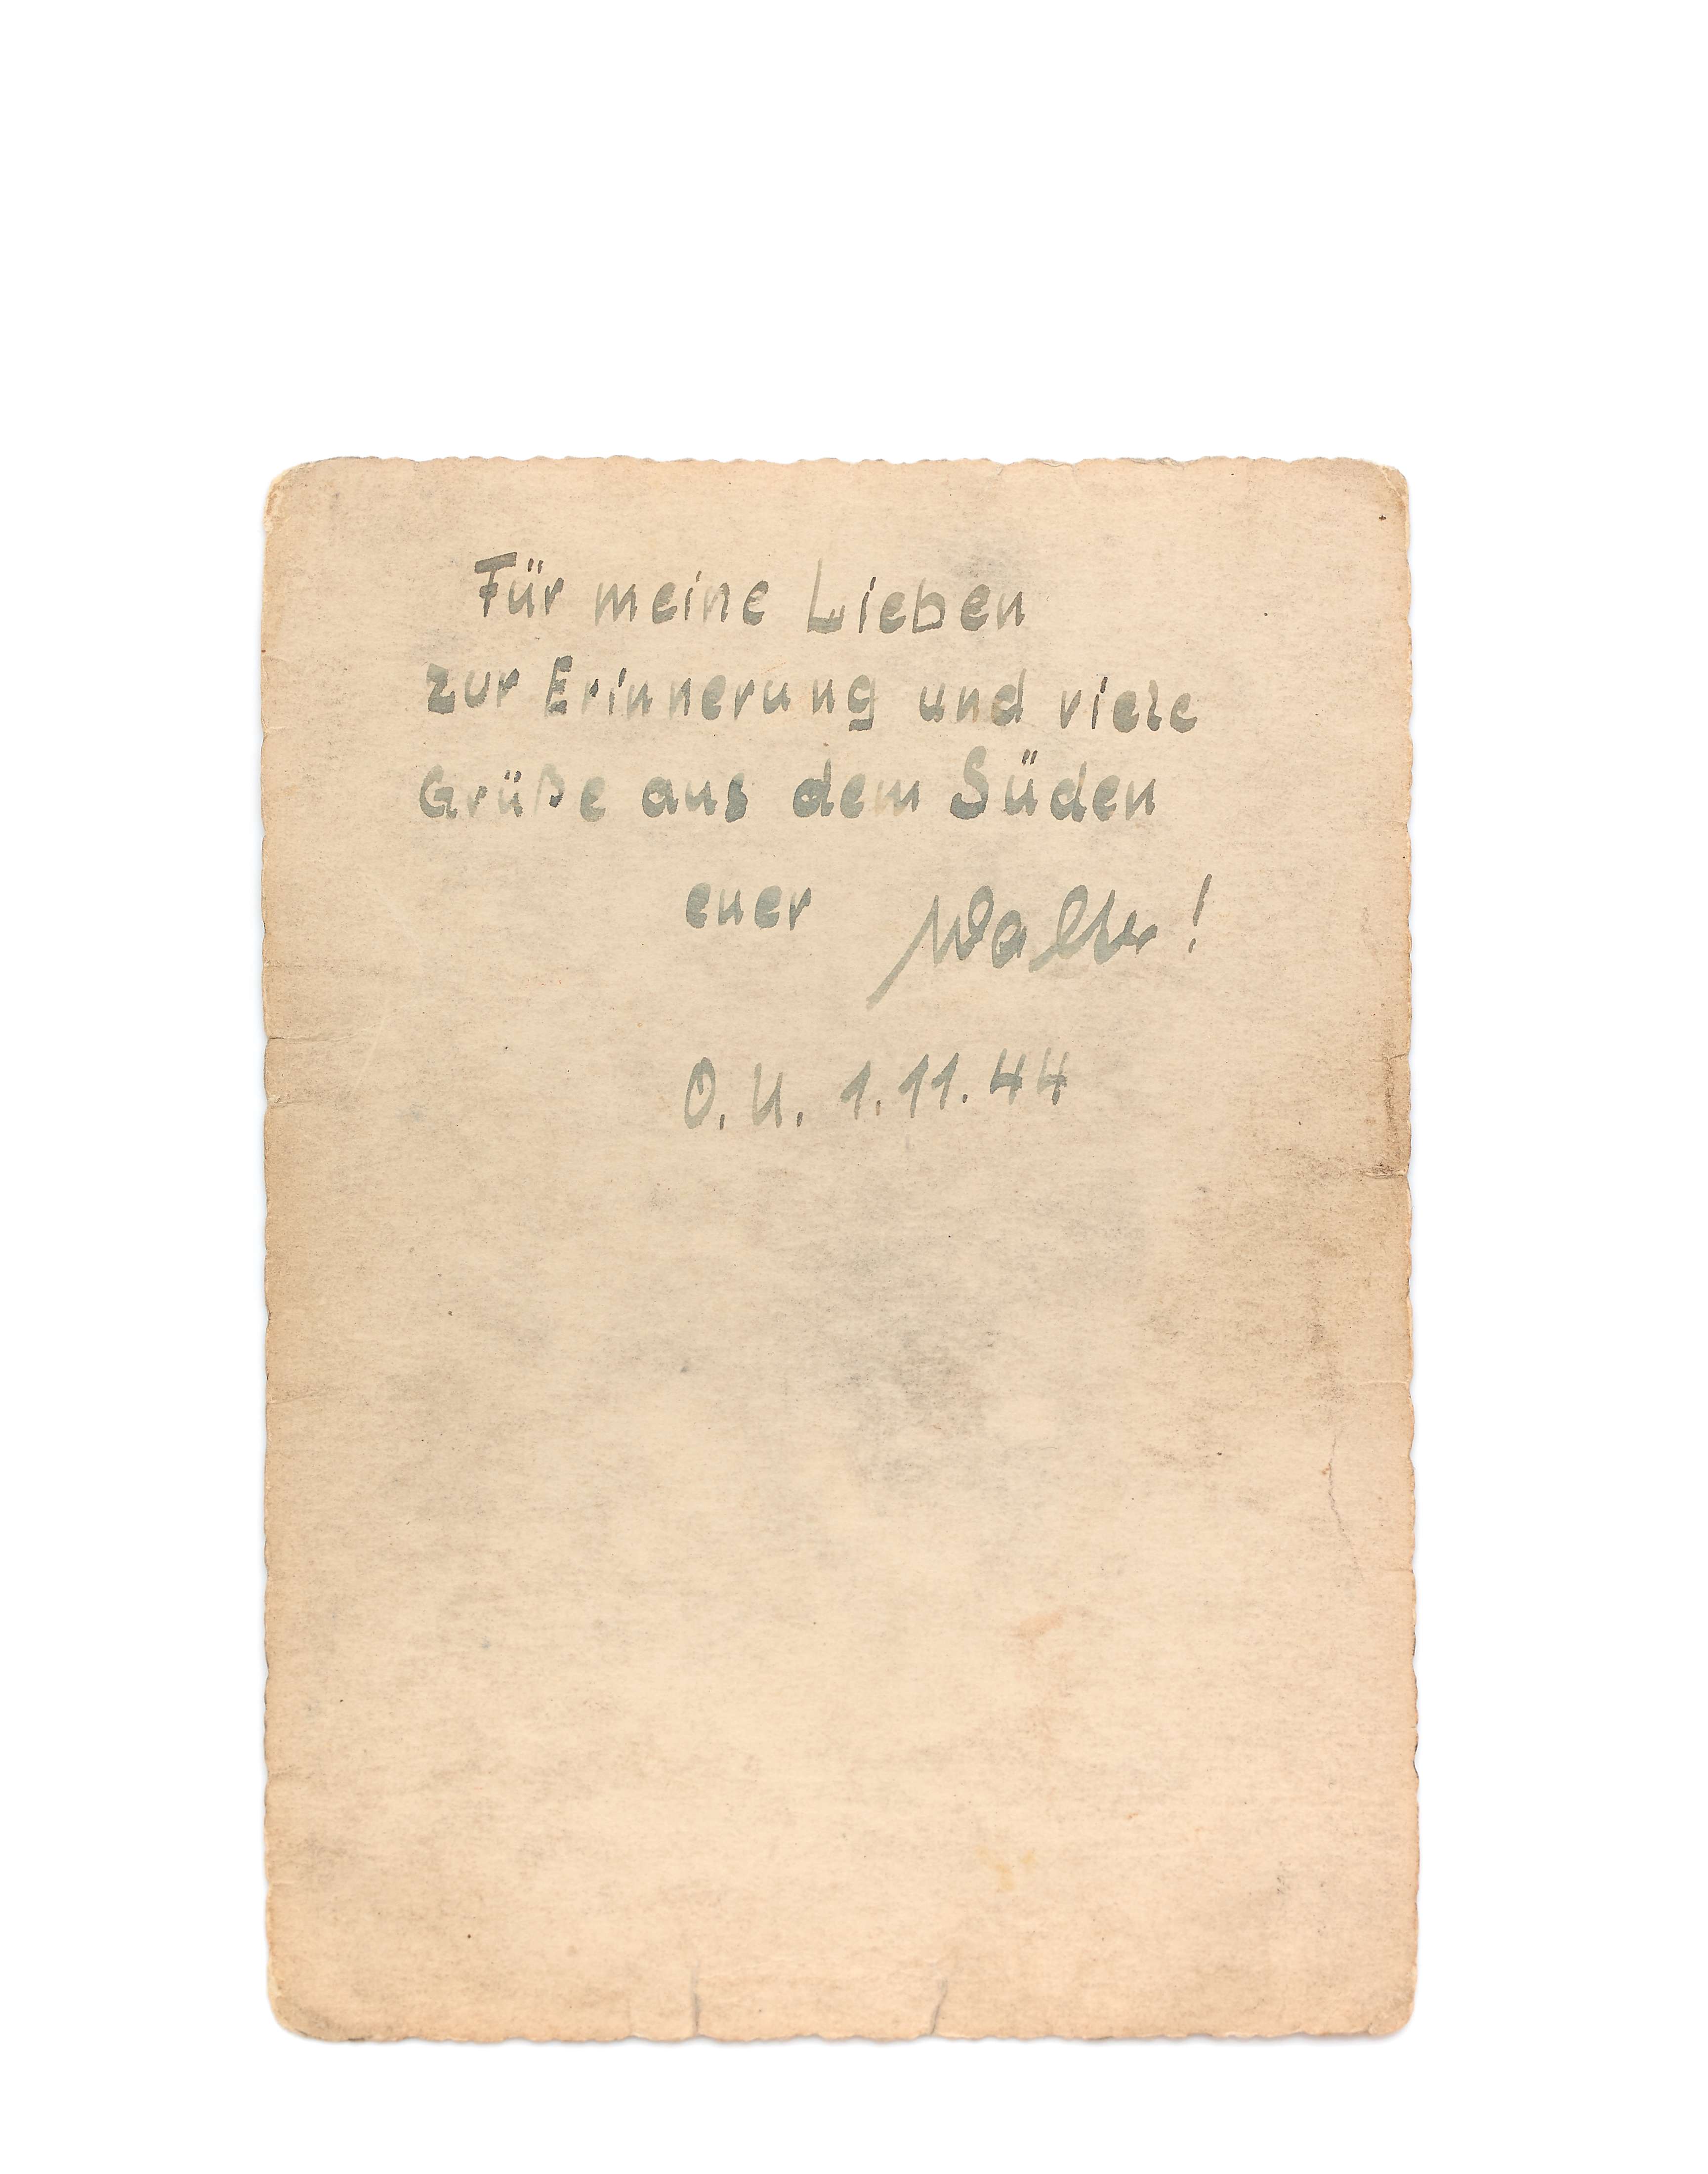 Für meine Lieben
zur Erinnerung und viele
Grüße aus dem Süden
euer Walter!
O.U. 1.11.44